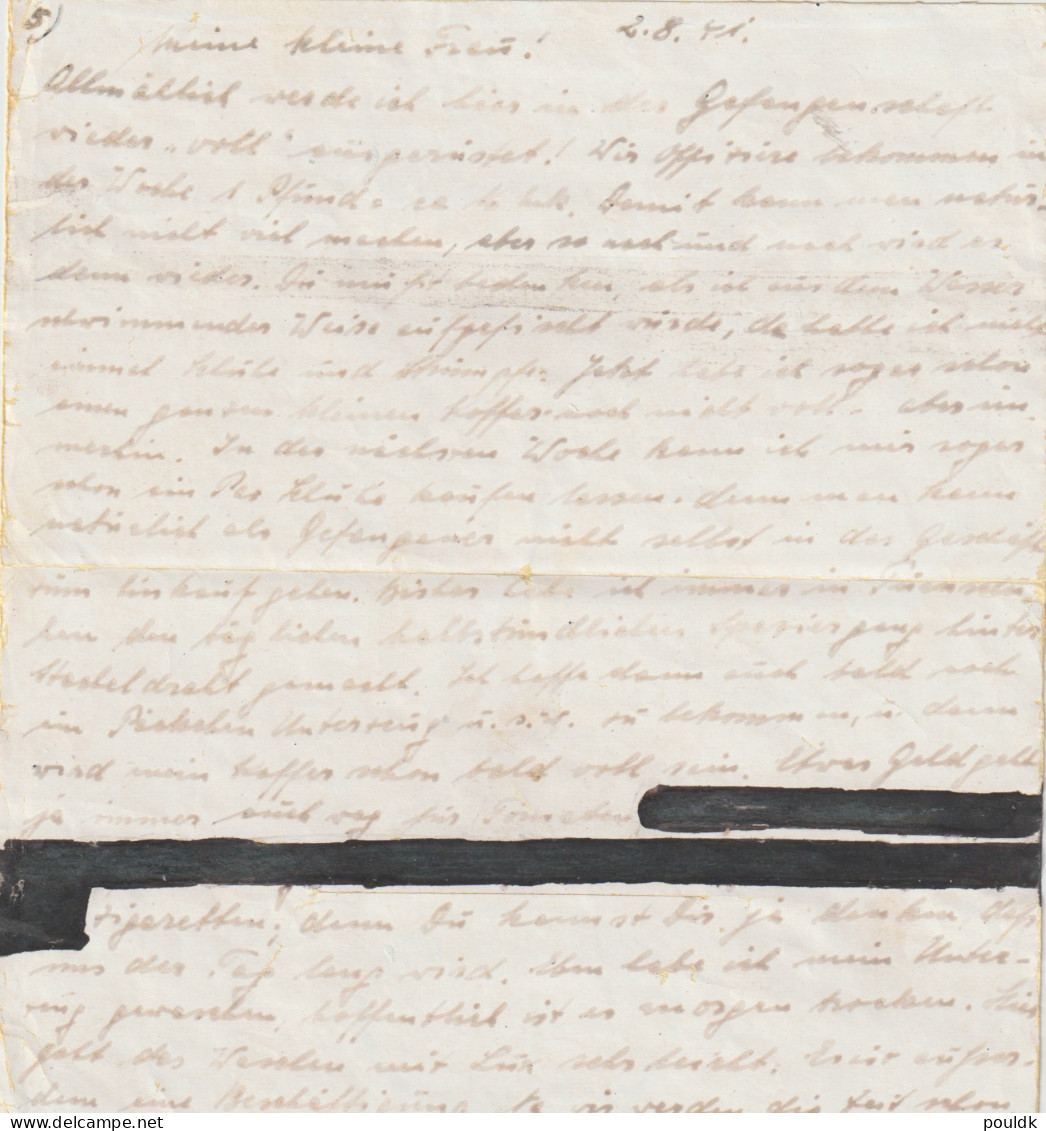 5)
Meine kleine Frau! 2.8.41.
Allmählich werde ich hier in der Gefangenschaft
wieder „voll" ausgerüstet! Wir Offiziere bekommen in
der Woche 1 Pfund = ca Mk. Damit kann man natür-
lich nicht viel machen, aber so nach und nach wird es
denn wieder. Du mußt bedenken, als ich aus dem Wasser
schwimmender Weise aufgefischt wurde, da hatte ich nicht
einmal Schuhe und Strümpfe. Jetzt habe ich sogar schon
einen ganzen kleinen Koffer noch nicht voll - aber im
merhin. In der nächsten Woche kann ich mir sogar
schon ein Par Schuhe kaufen lassen. denn man kann
natürlich als Gefangener nicht selbst in das Geschäft
zum Einkauf gehen. Bisher habe ich immer in
den täglichen halbstündlichen Spaziergang hinter
Stacheldraht gemacht. Ich hoffe dann auch bald noch
ein Unterzeug u.s.w. zu bekommen, u. dann
wird mein Koffer schon bald voll sein. Etwas Geld geht
ja immer auch weg für Tomaten
Zigaretten, denn Du kannst Dir ja denken, daß
uns der Tag lang wird. Eben habe ich mein Unter-
zeug gewaschen, hoffentlich ist es morgen trocken. Hier
geht das Waschen mit Lux sehr leicht. Es ist außer-
dem eine Beschäftigung. Na wir werden die Zeit schon
pouldk